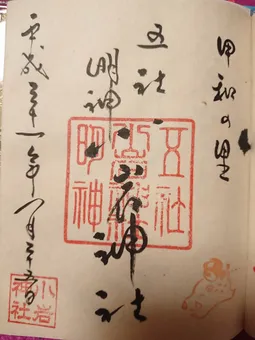 甲和の里
五社
明神
小岩神社
平成三十一年一月二十五日
五社
明神
小岩
神社